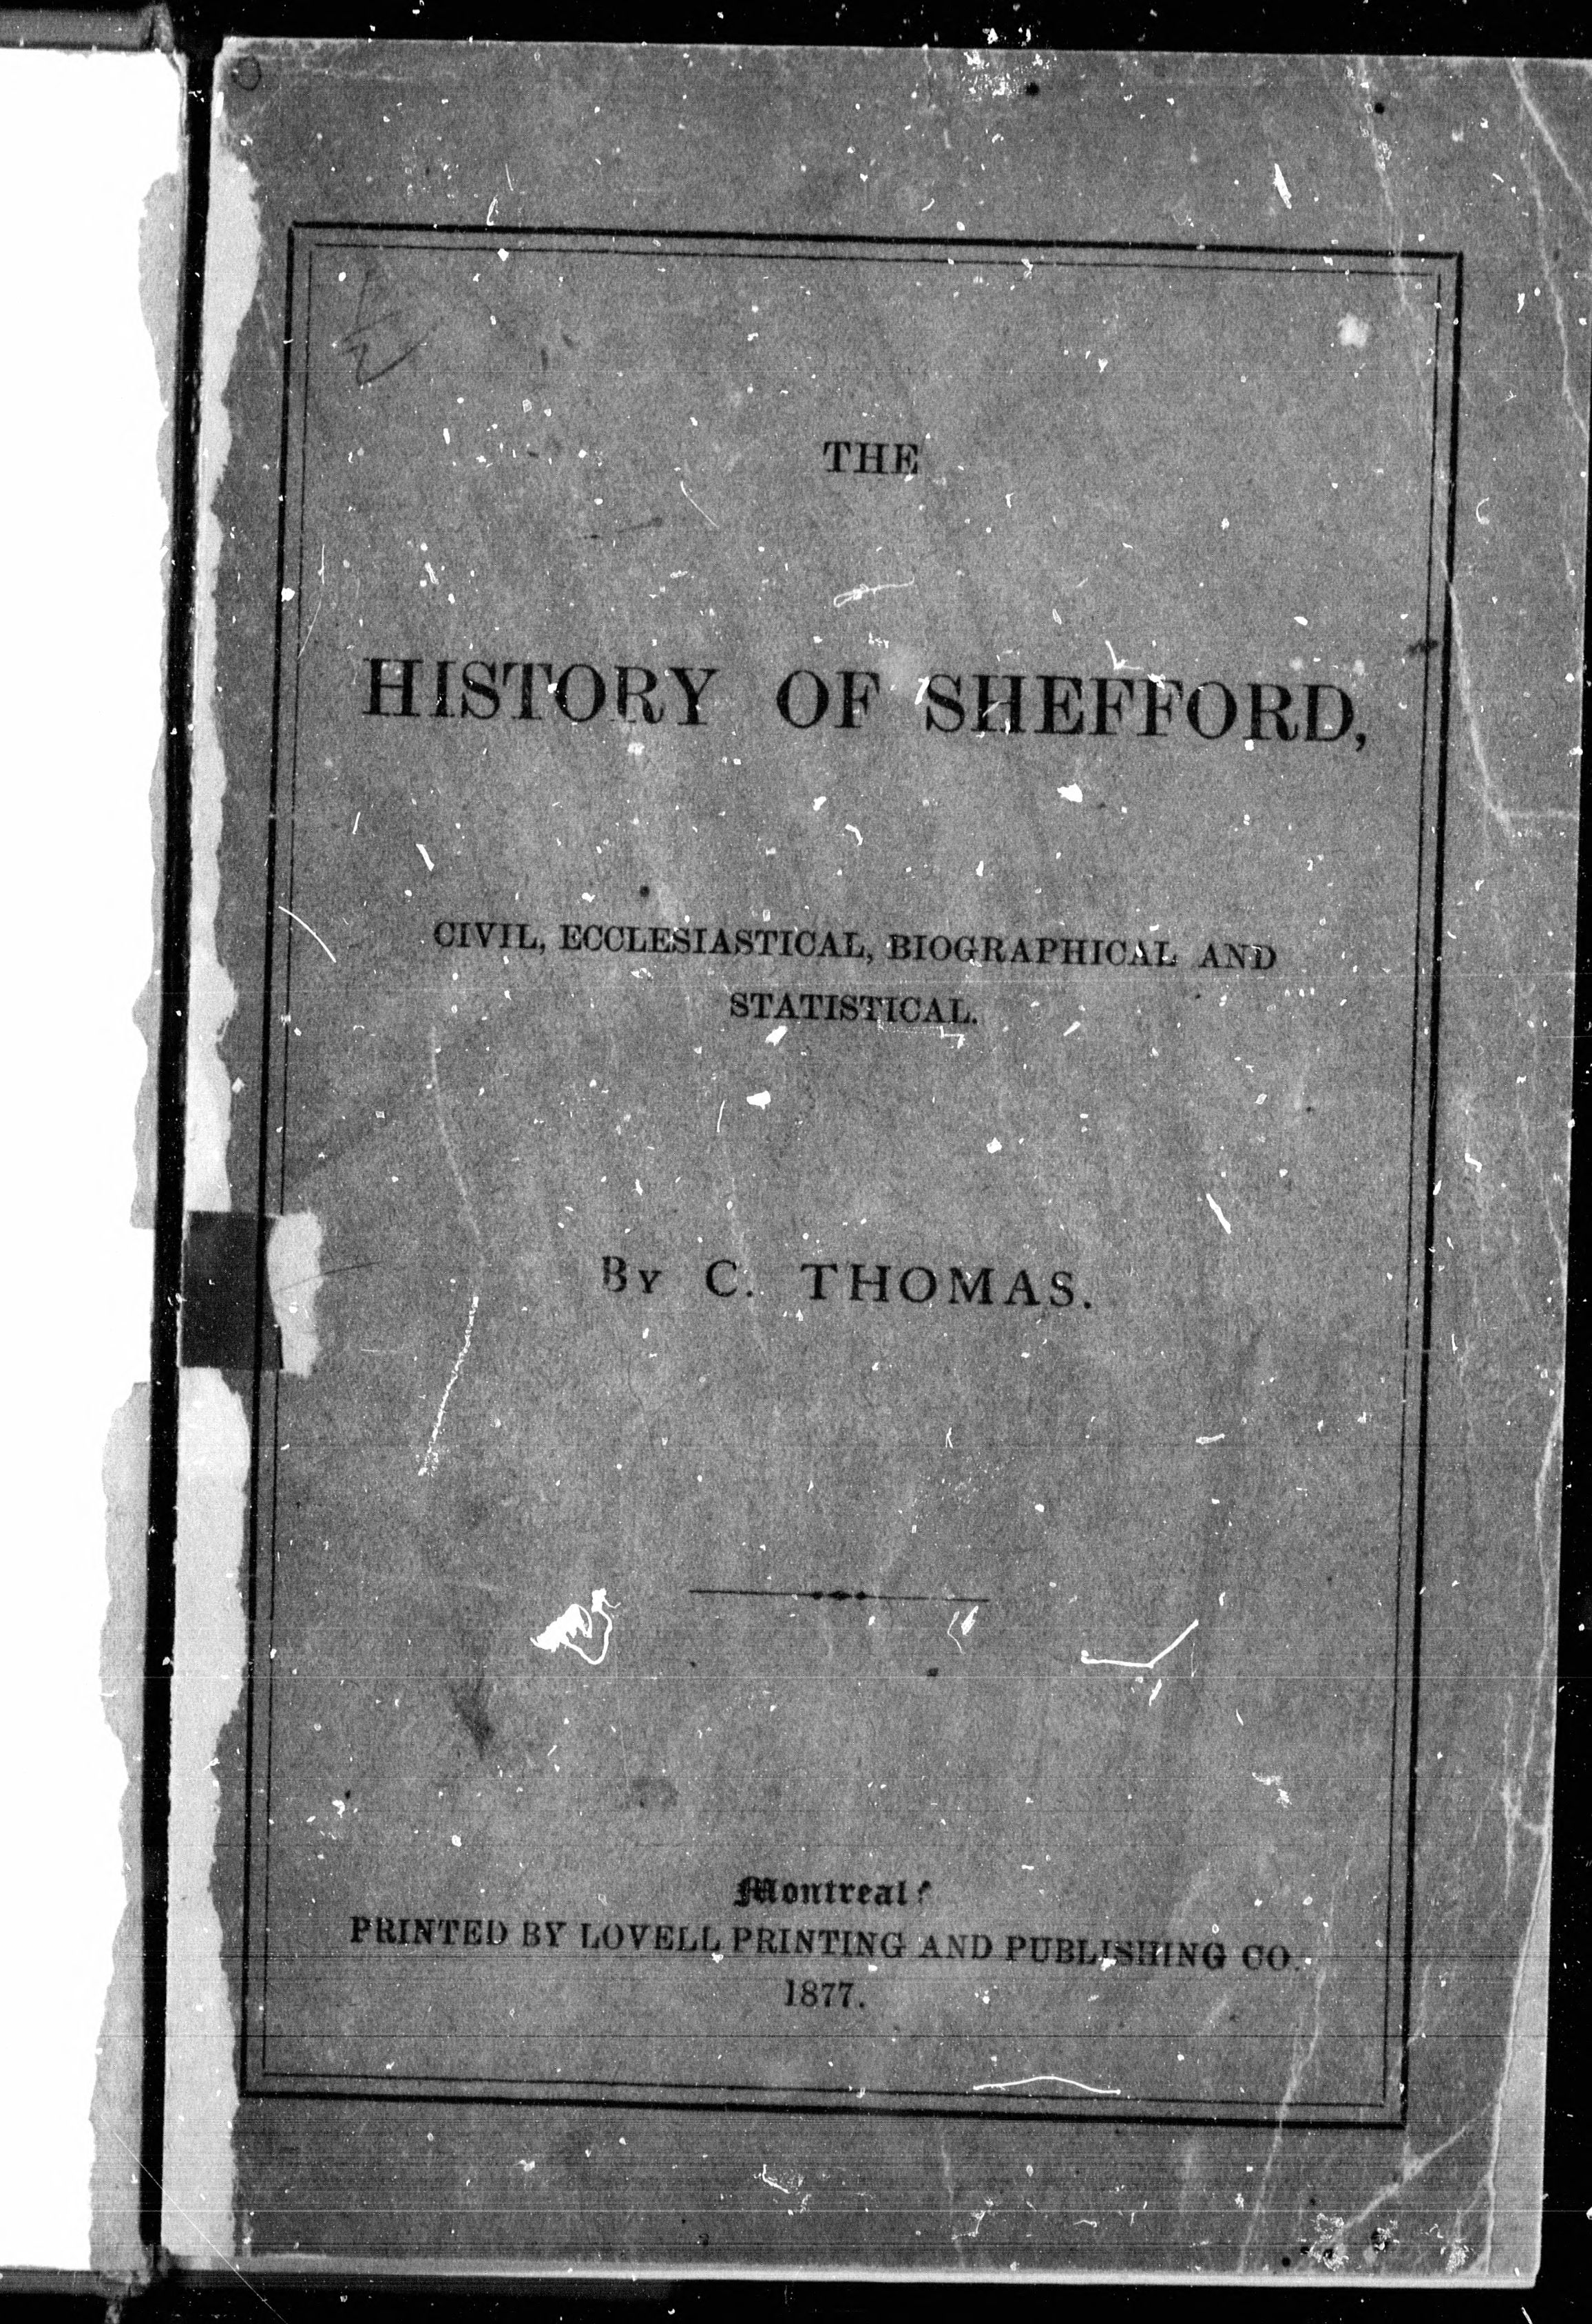 THE
HISTORY OF SHEFFORD,
CIVIL, ECCLESIASTICAL, BIOGRAPHICAL AND
STATISTICAL.
BY C. THOMAS.
Montreal:
PRINTED BY LOVELL PRINTING AND PUBLISHING CO.
1877.